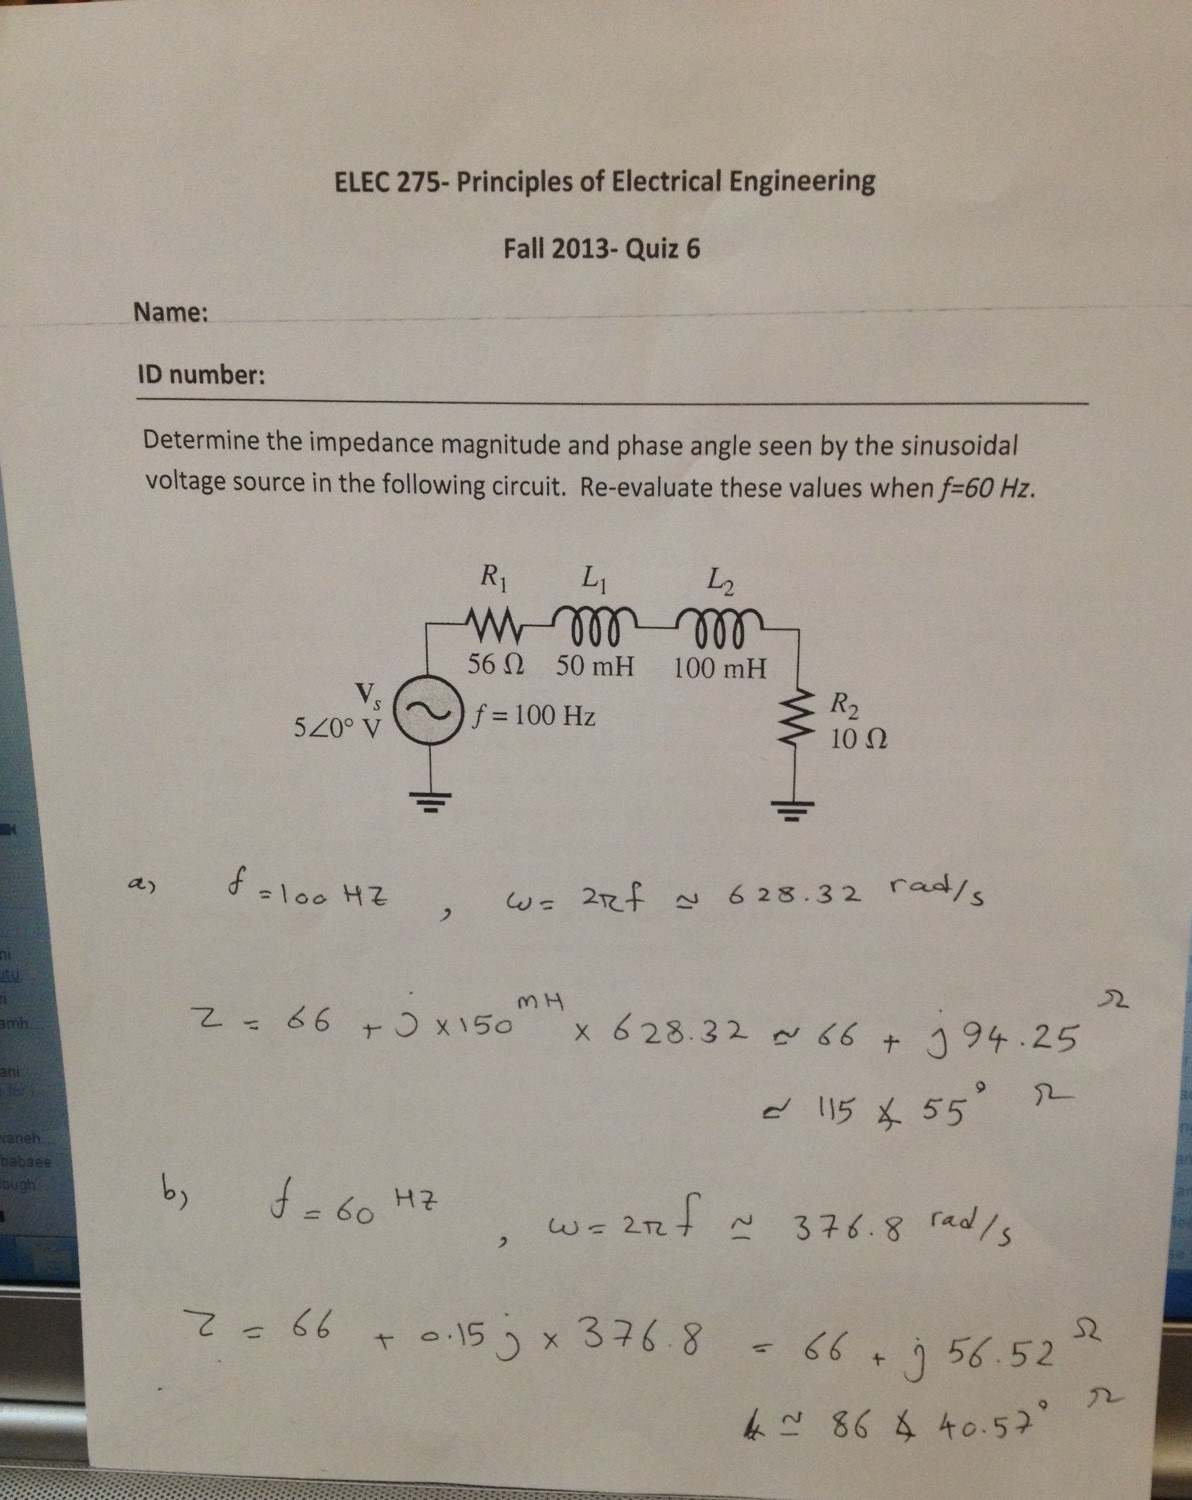 ELEC 275- Principles of Electrical Engineering
Fall 2013- Quiz 6
Name:
ID number:
Determine the impedance magnitude and phase angle seen by the sinusoidal
voltage source in the following circuit. Re-evaluate these values when f=60 Hz.
R₁ L₁ L₂
56 Ω 50 mH 100 mH
Vₛ
5∠0° V
f = 100 Hz
R₂
10 Ω
a) f = 100 HZ , ω = 2πf ≃ 628.32 rad/s
Z = 66 + j × 150 mH × 628.32 ≃ 66 + j 94.25 Ω
≃ 115 ∡ 55° Ω
b) f = 60 HZ , ω = 2πf ≃ 376.8 rad/s
Z = 66 + 0.15 j × 376.8 = 66 + j 56.52 Ω
≃ 86 ∡ 40.57° Ω